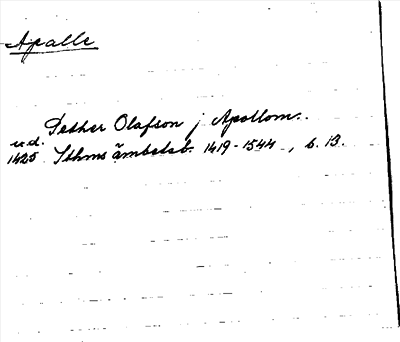 Apalle
Pether Olafson j Apollom.
u.d.
1425 Sthms ämbetsb. 1419-1544, s. 13.